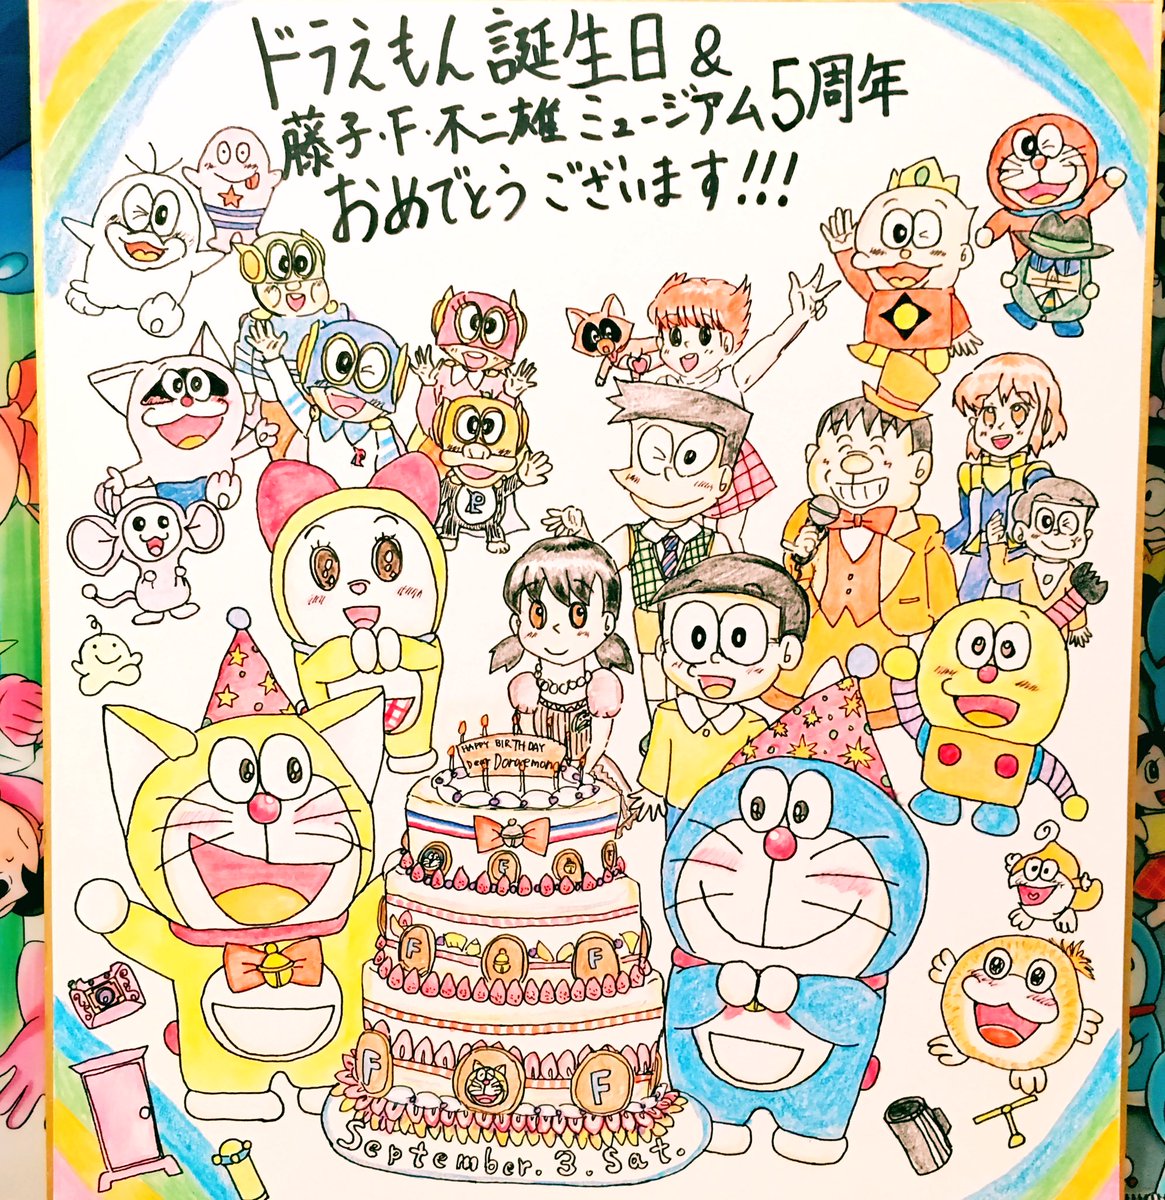 ドラえもん誕生日&
藤子・F・不二雄ミュージアム5周年
おめでとうございます!!!
P
P
HAPPY BIRTHDAY
Dear Doraemon
F
F
F
F
F
September.3.Sat.